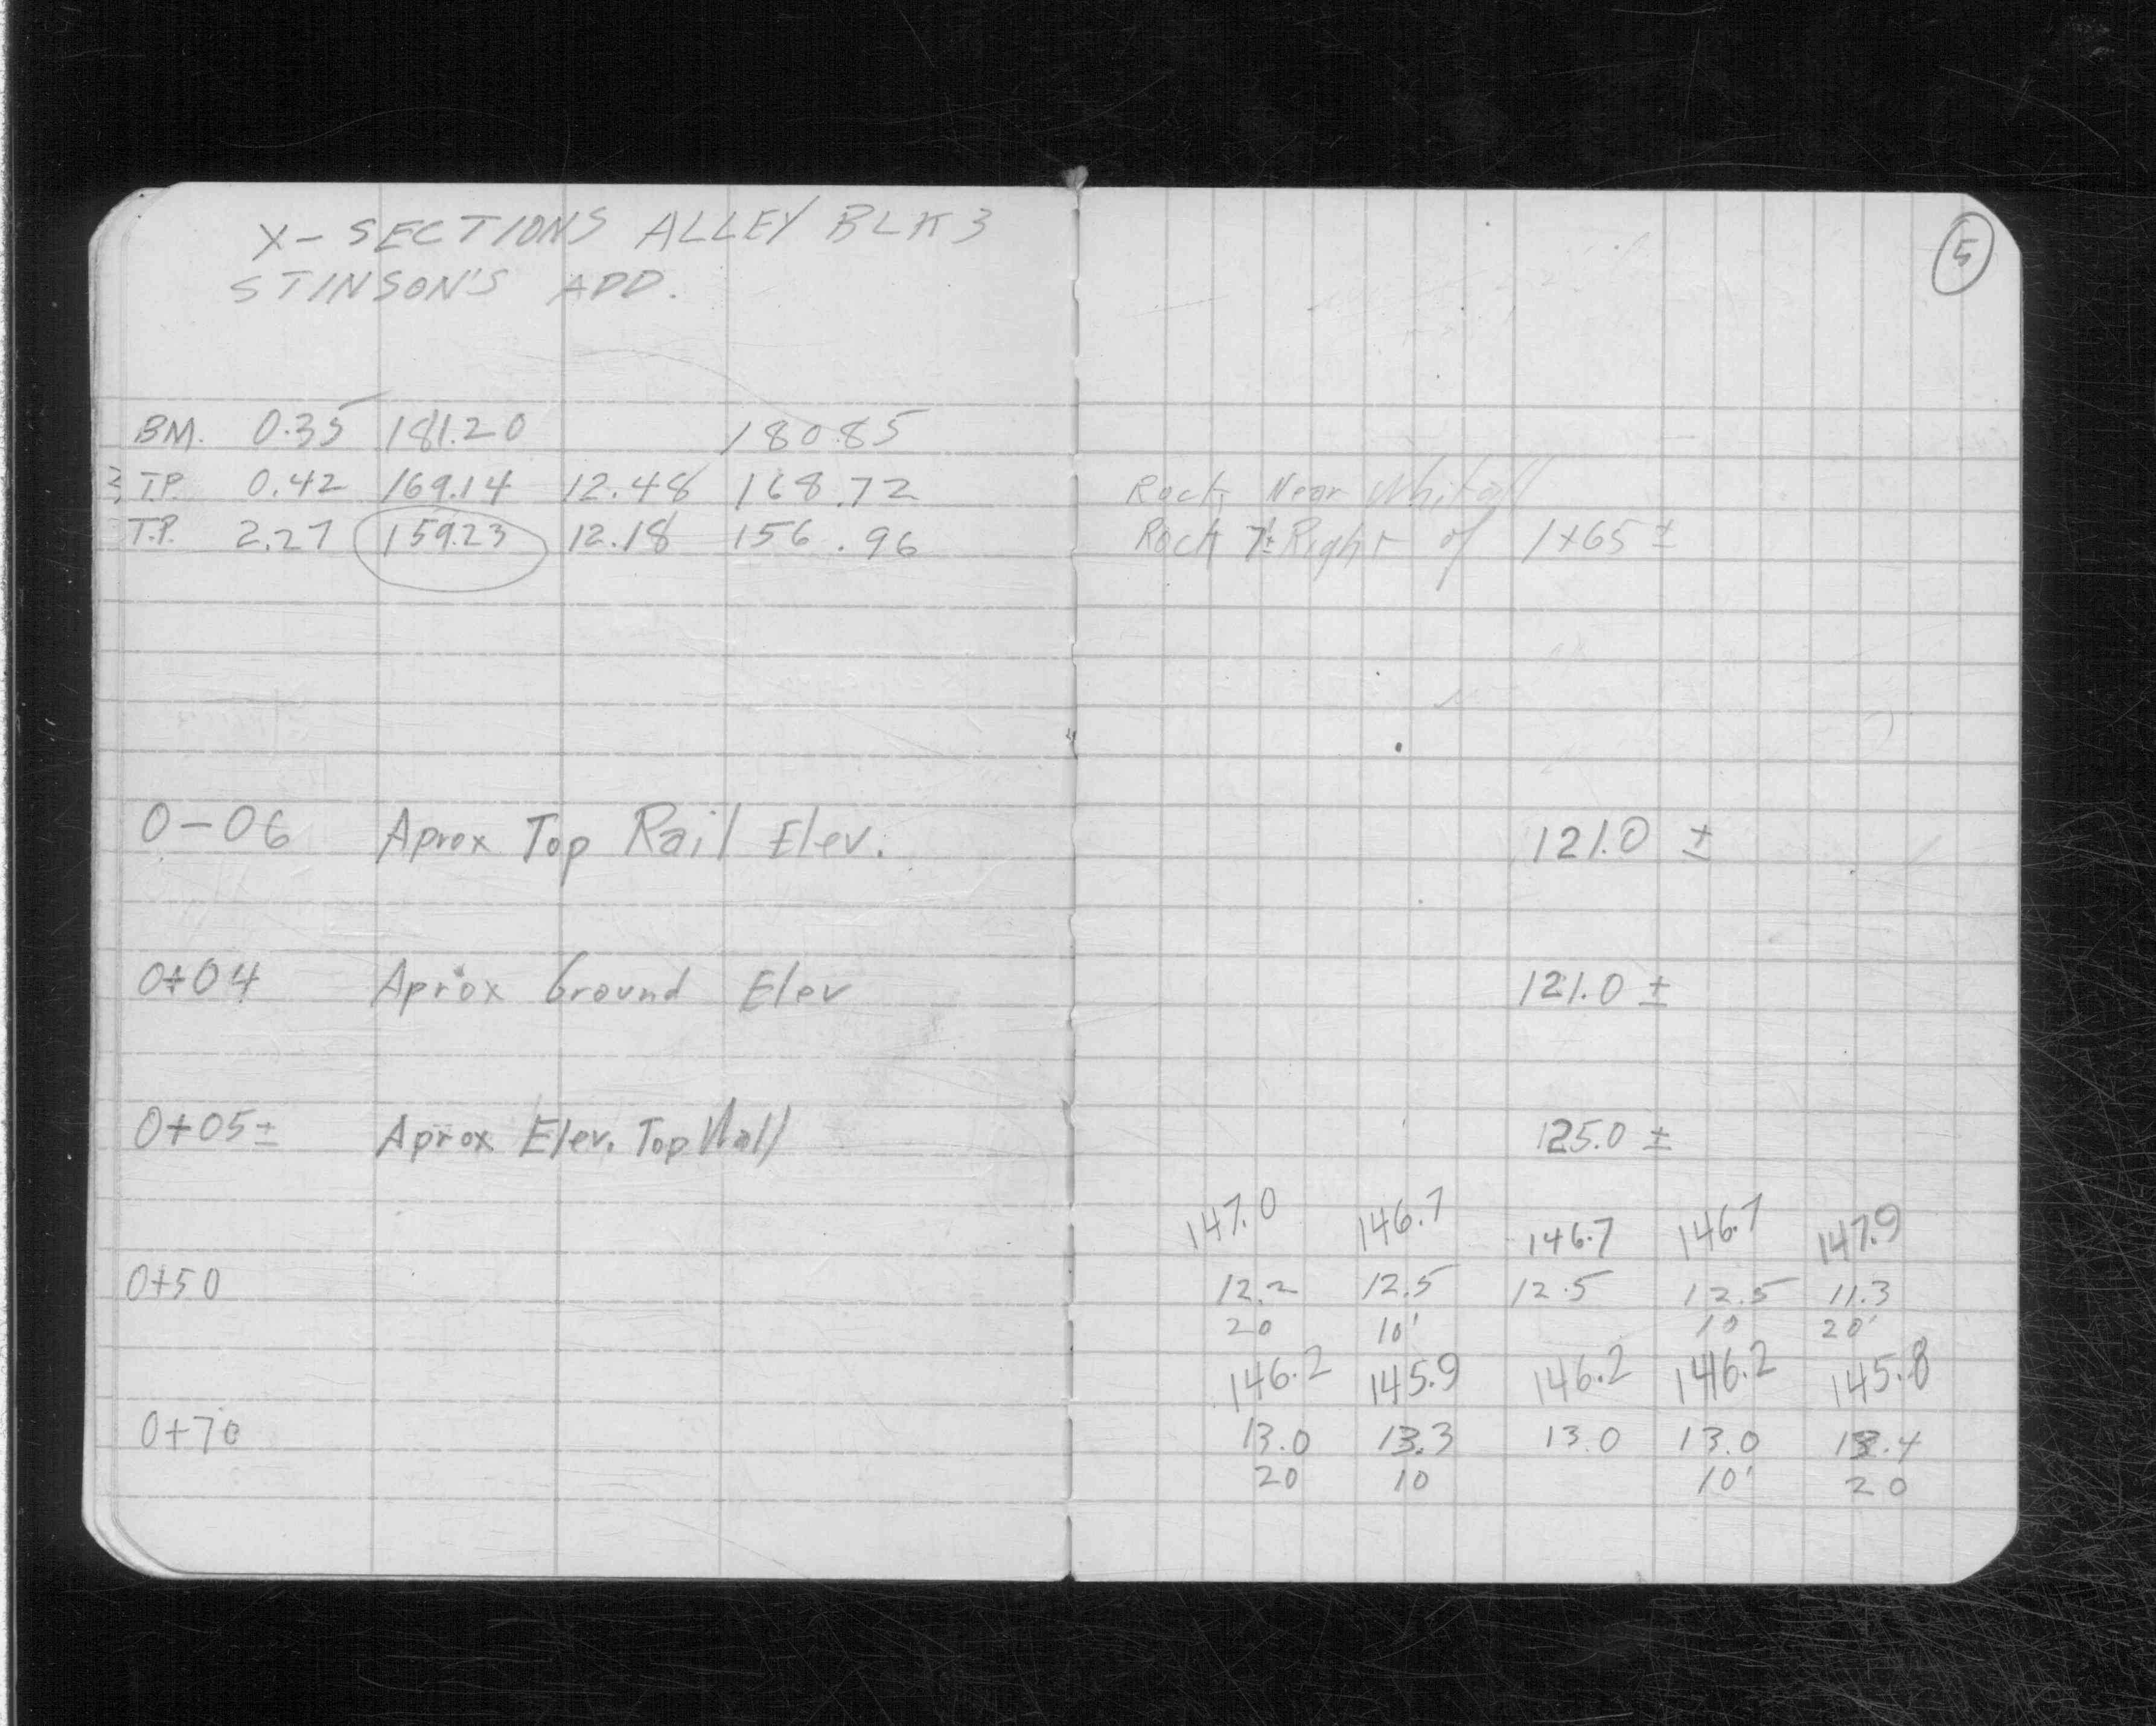 X-SECTIONS ALLEY BLK 3
STINSON'S ADD.
5
BM. 0.35 181.20 180.85
T.P. 0.42 169.14 12.48 168.72 Rock Near
T.P. 2.27 159.23 12.18 156.96 Rock 7'± Right of 1+65±
0-06 Aprox Top Rail Elev. 121.0 ±
0+04 Aprox Ground Elev 121.0 ±
0+05± Aprox Elev. Top Wall 125.0 ±
147.0 146.7 146.7 146.7 147.9
0+50 12.2 12.5 12.5 12.5 11.3
20 10' 10 20'
146.2 145.9 146.2 146.2 145.8
0+70 13.0 13.3 13.0 13.0 13.4
20 10 10' 20